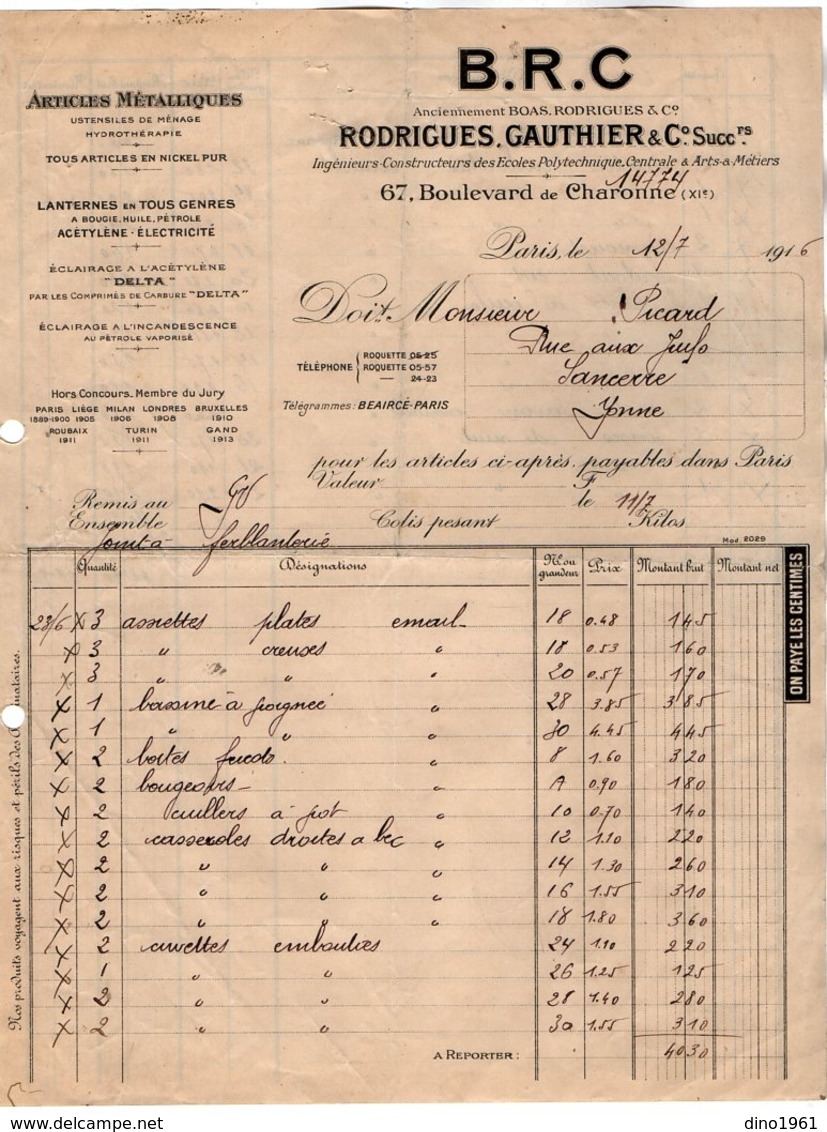 B.R.C
Anciennement BOAS, RODRIGUES & Cº
RODRIGUES, GAUTHIER & Cº Succrs.
Ingénieurs-Constructeurs des Ecoles Polytechnique, Centrale & Arts-&-Métiers
14774
67, Boulevard de Charonne (XIe)
ARTICLES MÉTALLIQUES
USTENSILES DE MÉNAGE
HYDROTHÉRAPIE
TOUS ARTICLES EN NICKEL PUR
LANTERNES EN TOUS GENRES
A BOUGIE, HUILE, PÉTROLE
ACÉTYLÈNE - ÉLECTRICITÉ
ÉCLAIRAGE A L'ACÉTYLÈNE
"DELTA"
PAR LES COMPRIMÉS DE CARBURE "DELTA"
ÉCLAIRAGE A L'INCANDESCENCE
AU PÉTROLE VAPORISÉ
HORS CONCOURS. MEMBRE DU JURY
PARIS LIÈGE MILAN LONDRES BRUXELLES
1889-1900 1905 1906 1908 1910
ROUBAIX TURIN GAND
1911 1911 1913
Paris, le 12/7 1916
Doit Monsieur Picard
Rue aux Juifs
Sancerre
Yonne
TÉLÉPHONE
ROQUETTE 05-25
ROQUETTE 05-57
— 24-23
Télégrammes : BEAIRCÉ-PARIS
pour les articles ci-après, payables dans Paris
Valeur F
Remis au GV le 11/7
Ensemble Colis pesant Kilos
Joint à ferblanterie
Mod. 2029
Quantité Désignations Nº ou grandeur Prix Montant brut Montant net
23/6 x 3 assiettes plates email 18 0.48 145
x 3 " creuses " 18 0.53 160
x 3 " " " 20 0.57 170
x 1 bassine à poignée " 28 3.85 385
x 1 " " " 30 4.45 445
x 2 boites " 8 1.60 320
x 2 bougeoirs " A 0.90 180
x 2 cuillers à pot " 10 0.70 140
x 2 casseroles droites a bec " 12 1.10 220
x 2 " " " 14 1.30 260
x 2 " " " 16 1.55 310
x 2 " " " 18 1.80 360
x 2 cuvettes embouties 24 1.10 220
x 1 " " 26 1.25 125
x 2 " " 28 1.40 280
x 2 " " 30 1.55 310
A REPORTER : 4030
ON PAYE LES CENTIMES
Nos produits voyagent aux risques et périls des
dino1961